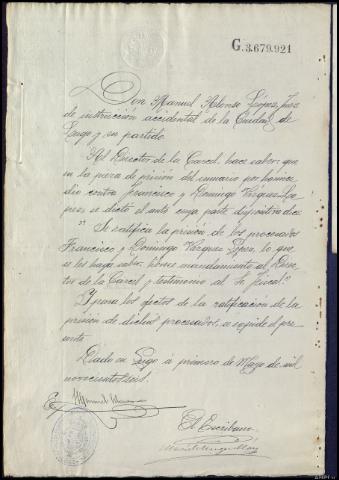 G.3.679.921
Don Manuel Alonso López, Juez
de instrucción accidental de la Ciudad de
Lugo y su partido.
Al Director de la Carcel hace saber: que
en la pieza de prisión del sumario por homici
dio contra Francisco y Domingo Vazquez Lo
pez, se dictó el auto cuya parte dispositiva dice
"Se ratifica la prisión de los procesados
Francisco y Domingo Vazquez Lopez, lo que
se les haga saber, líbrese mandamiento al Direc
tor de la Carcel y testimonio al Sr. Fiscal"
Y para los efectos de la ratificación de la
prisión de dichos procesados, se expide el pre
sente.
Dado en Lugo á primero de Mayo de mil
novecientos seis.
Manuel
El Escribano